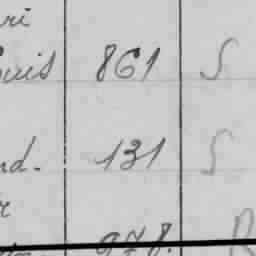 ri
uis 861 S
nd. 131 S
r
978. R